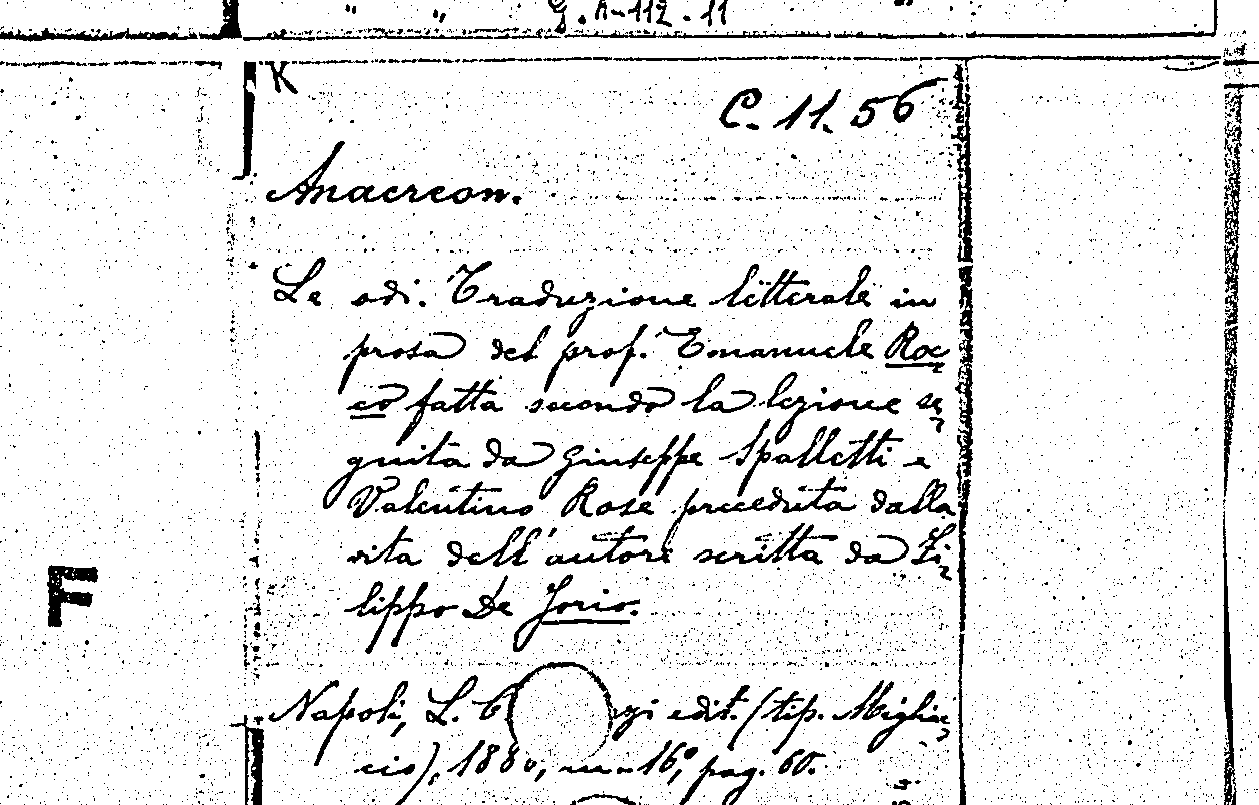 " " G. A-112-11 "
K
C. 11. 56
Anacreon.
Le odi. Traduzione litterale in
prosa del prof. Emanuele Roc
co fatta secondo la lezione se
guita da Giuseppe Spalletti e
Valentino Rose preceduta dalla
vita dell'autore scritta da Fi
lippo De Jorio.
F
Napoli, L. edit. (tip. Miglia
cio), 1880, in-16°, pag. 60.